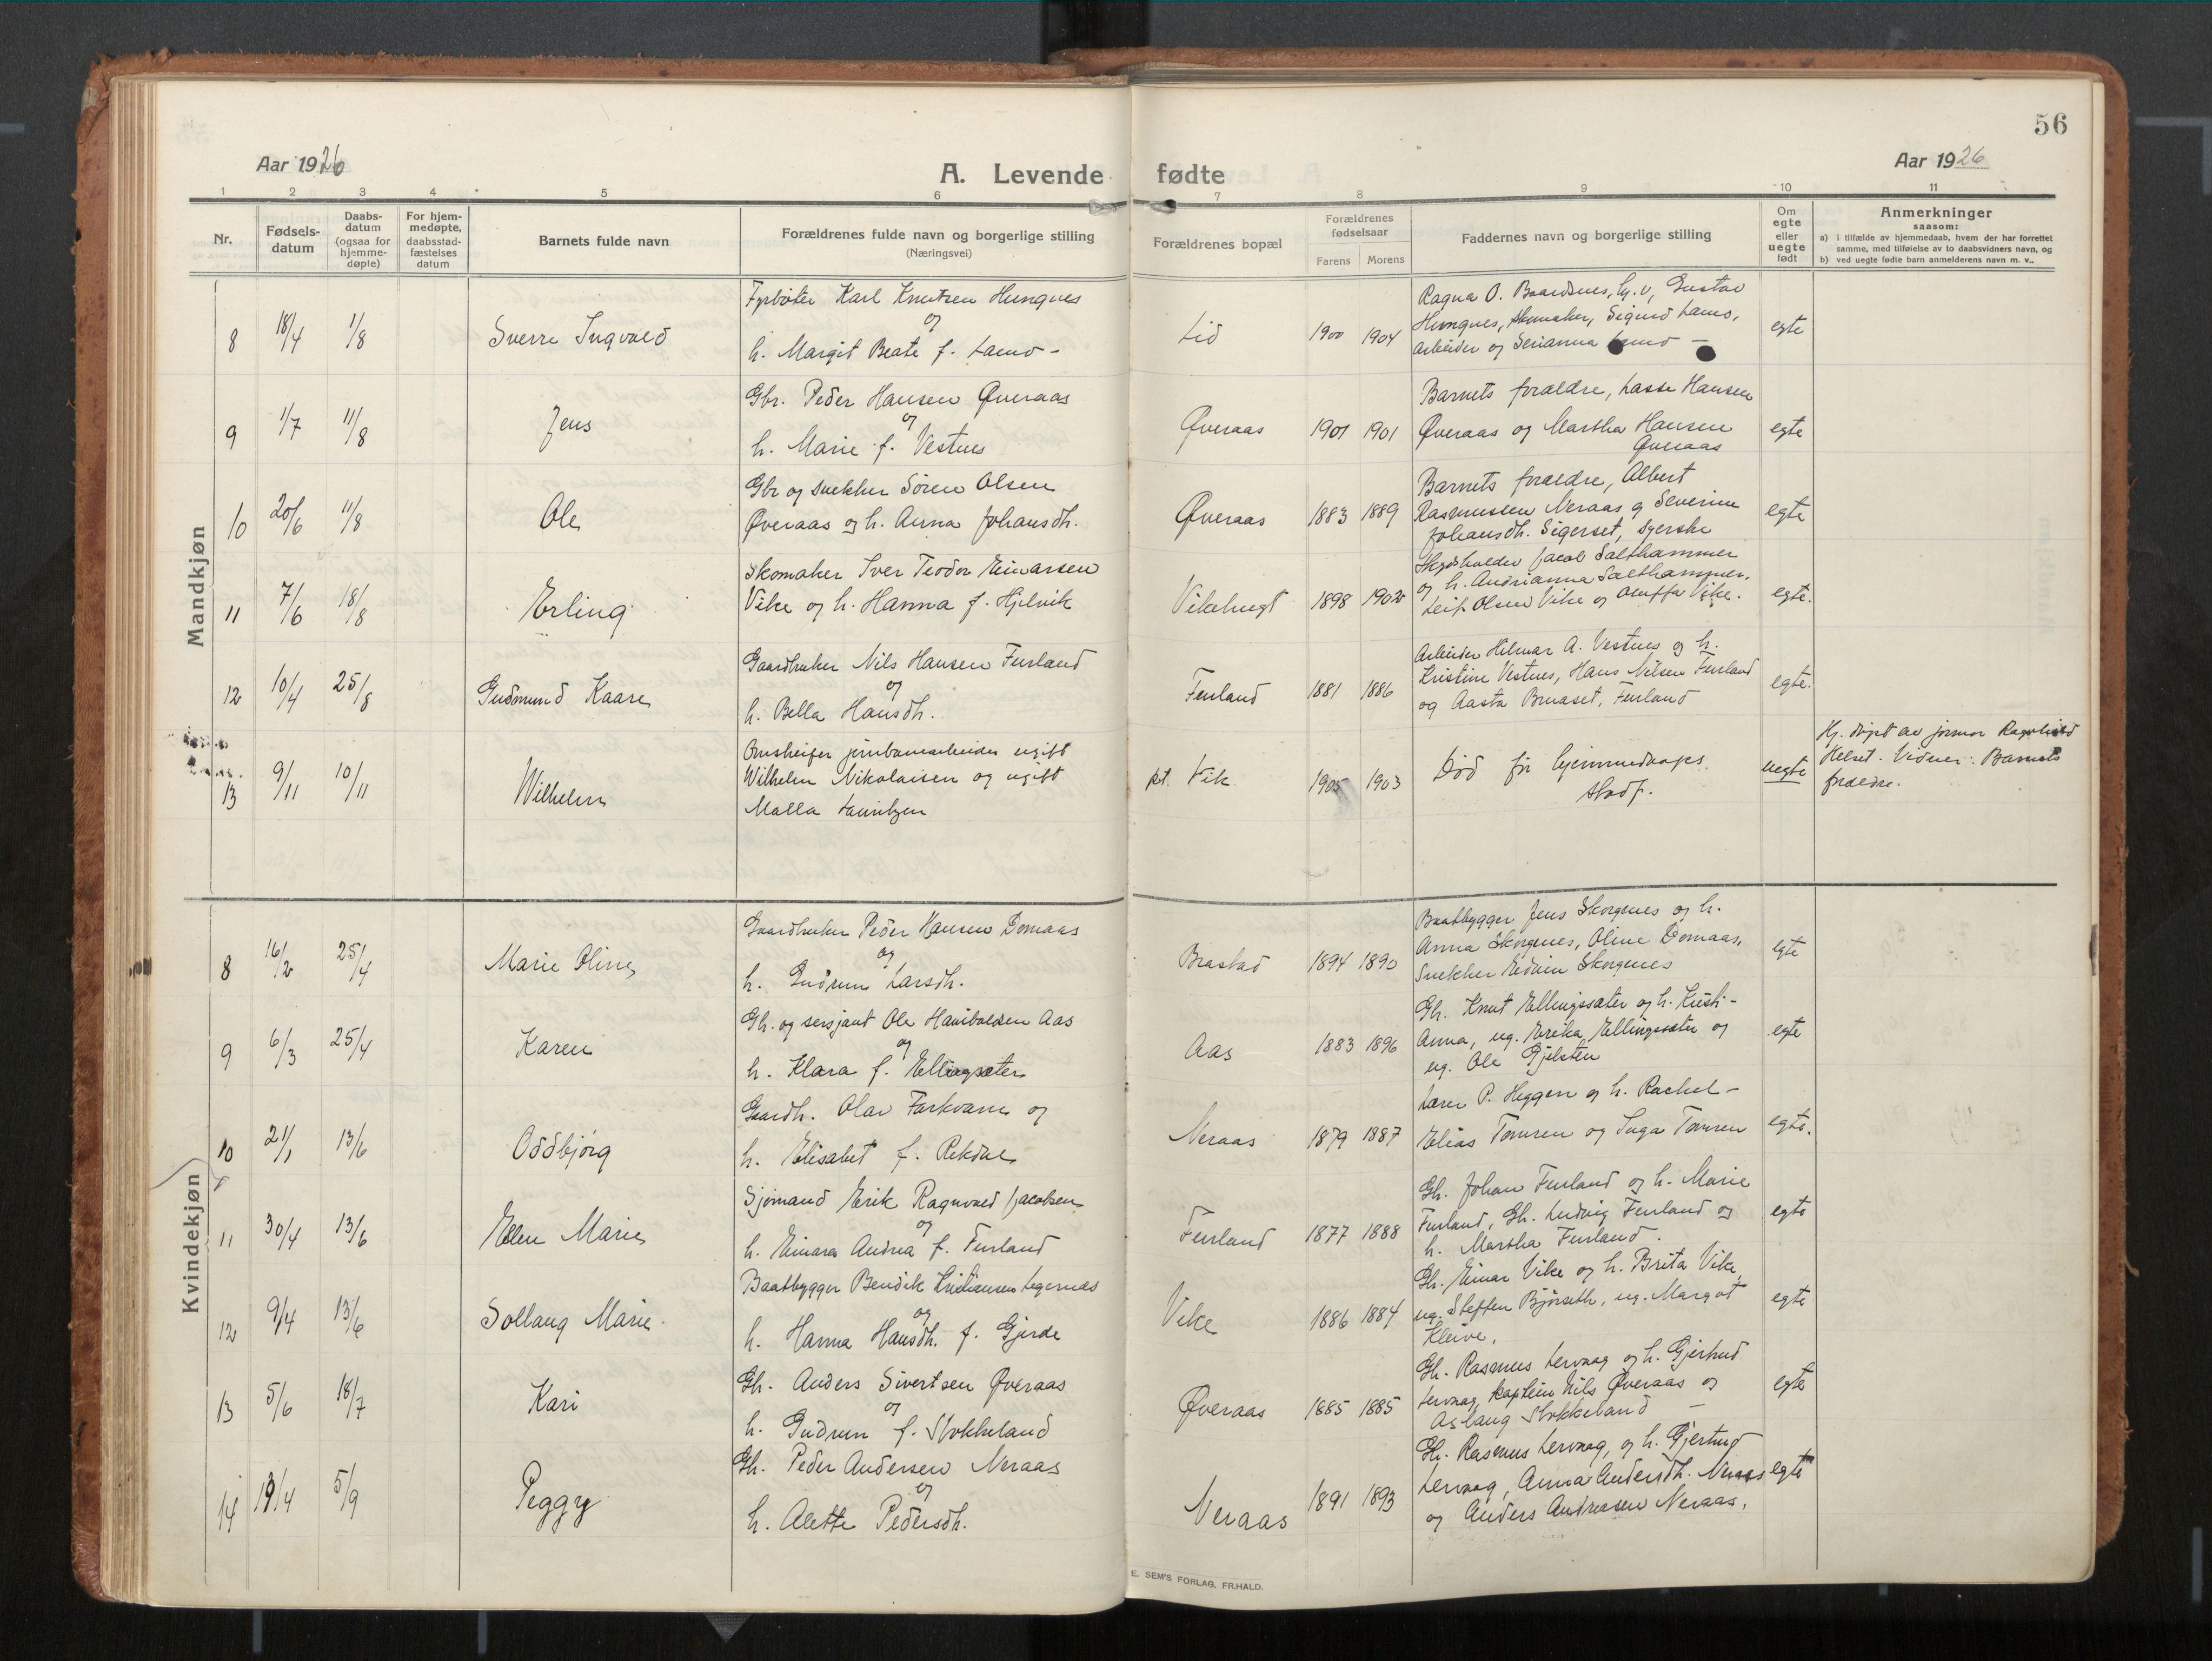 56
Aar 1926
A. Levende fødte
Aar 1926
1 2 3 4 5 6 7 8 9 10 11
Nr.
Fødsels-
datum
Daabs-
datum
(ogsaa for
hjemme-
døpte)
For hjem-
medøpte,
daabsstad-
fæstelses
datum
Barnets fulde navn
Forældrenes fulde navn og borgerlige stilling
(Næringsvei)
Forældrenes bopæl
Forældrenes
fødselsaar
Farens Morens
Faddernes navn og borgerlige stilling
Om
egte
eller
uegte
født
Anmerkninger
saasom:
a) i tilfælde av hjemmedaab, hvem der har forrettet
samme, med tilføielse av to daabsvidners navn, og
b) ved uegte fødte barn anmelderens navn m. v..
Mandkjøn
8 18/4 1/8 Sverre Ingvald
Fyrbøter Karl Knutsen Hungnes
og
h. Margit Beate f. Lamo -
Lid 1900 1904
Ragna O. Baardsnes, Gustav
Hungnes, skomaker, Sigurd Lamo,
arbeider og Serianna Lamo -
egte
9 1/7 11/8 Jens
Gbr. Peder Hansen Øveraas
og
h. Marie f. Vestnes
Øveraas 1901 1901
Barnets forældre, Lasse Hansen
Øveraas og Martha Hansen
Øveraas
egte
10 20/6 11/8 Ole
Gbr og snekker Søren Olsen
Øveraas og h. Anna Johansdh.
Øveraas 1883 1889
Barnets forældre, Albert
Rasmussen Neraas og Severine
Johansdh. Sigerset, syerske
egte
11 7/6 18/8 Erling
Skomaker Iver Teodor Einarsen
Vike og h. Hanna f. Hjelvik
Vikebugt 1898 1902
Jacob Salthammer
og h. Andrianna Salthammer,
Leif Olsen Vike og Oluffa Vike.
egte.
12 10/4 25/8 Gudmund Kaare
Gaardbruker Nils Hansen Furland
og
h. Bella Hansdh.
Furland 1881 1886
Arbeider Hilmar A. Vestnes og h.
Kristine Vestnes, Hans Nilsen Furland
og Aasta Bruaset, Furland
egte.
13 9/11 10/11 Wilhelm
jernbanearbeider ugift
Wilhelm Nikolaisen og ugift
Malla Lauritzen
pt. Vik 1905 1903
Død før hjemmedaaps
stadf.
uegte
Hj. døpt av jormor Ragnhild
Helset. Vidner: Barnets
forældre.
Kvindekjøn
8 16/2 25/4 Marie Oline
Gaardbruker Peder Hansen Domaas
og
h. Gudrun Larsdh.
Brastad 1894 1890
Baatbygger Jens Skorgenes og h.
Anna Skorgenes, Oline Domaas,
Snekker Edvin Skorgenes
egte
9 6/3 25/4 Karen
Gb. og sersjant Ole Haniboldsen Aas
og
h. Klara f. Ellingsæter
Aas 1883 1896
Gb. Knut Ellingssæter og h. Kristi-
Anna, ug. Erika Ellingssæter og
ug. Ole Gjelsten
egte
10 21/1 13/6 Oddbjørg
Gaardb. Olav Farkvam og
h. Elisabet f. Rekdal
Neraas 1879 1887
Lærer P. Heggen og h. Rachel -
Elias Tomren og Inga Tomren
egte.
11 30/4 13/6 Ellen Marie
Sjømand Erik Ragnvald Jacobsen
og
h. Einara Andrea f. Furland
Furland 1877 1888
Gb. Johan Furland og h. Marie
Furland, Gb. Ludvig Furland og
h. Martha Furland.
egte
12 9/4 13/6 Sollaug Marie
Baatbygger Bendik Kristiansen Legernæs
og
h. Hanna Hansdh. f. Gjerde
Vike 1886 1884
Gb. Einar Vike og h. Brita Vike,
ug. Steffen Bjørseth, ug. Margot
Kleive.
egte
13 5/6 18/7 Kari
Gb. Anders Sivertsen Øveraas
og
h. Gudrun f. Stokkeland
Øveraas 1885 1885
Gb. Rasmus Lervaag og h. Gjertrud
Lervaag, kaptein Nils Øveraas og
Aslaug Stokkeland -
egte
14 19/4 5/9 Peggy
Gb. Peder Andersen Neraas
og
h. Alette Pedersdh.
Neraas 1891 1893
Gb. Rasmus Lervaag, og h. Gjertrud
Lervaag, Anna Andersdh. Neraas
og Anders Andreasen Neraas.
egte
E. SEM'S FORLAG, FR.HALD.